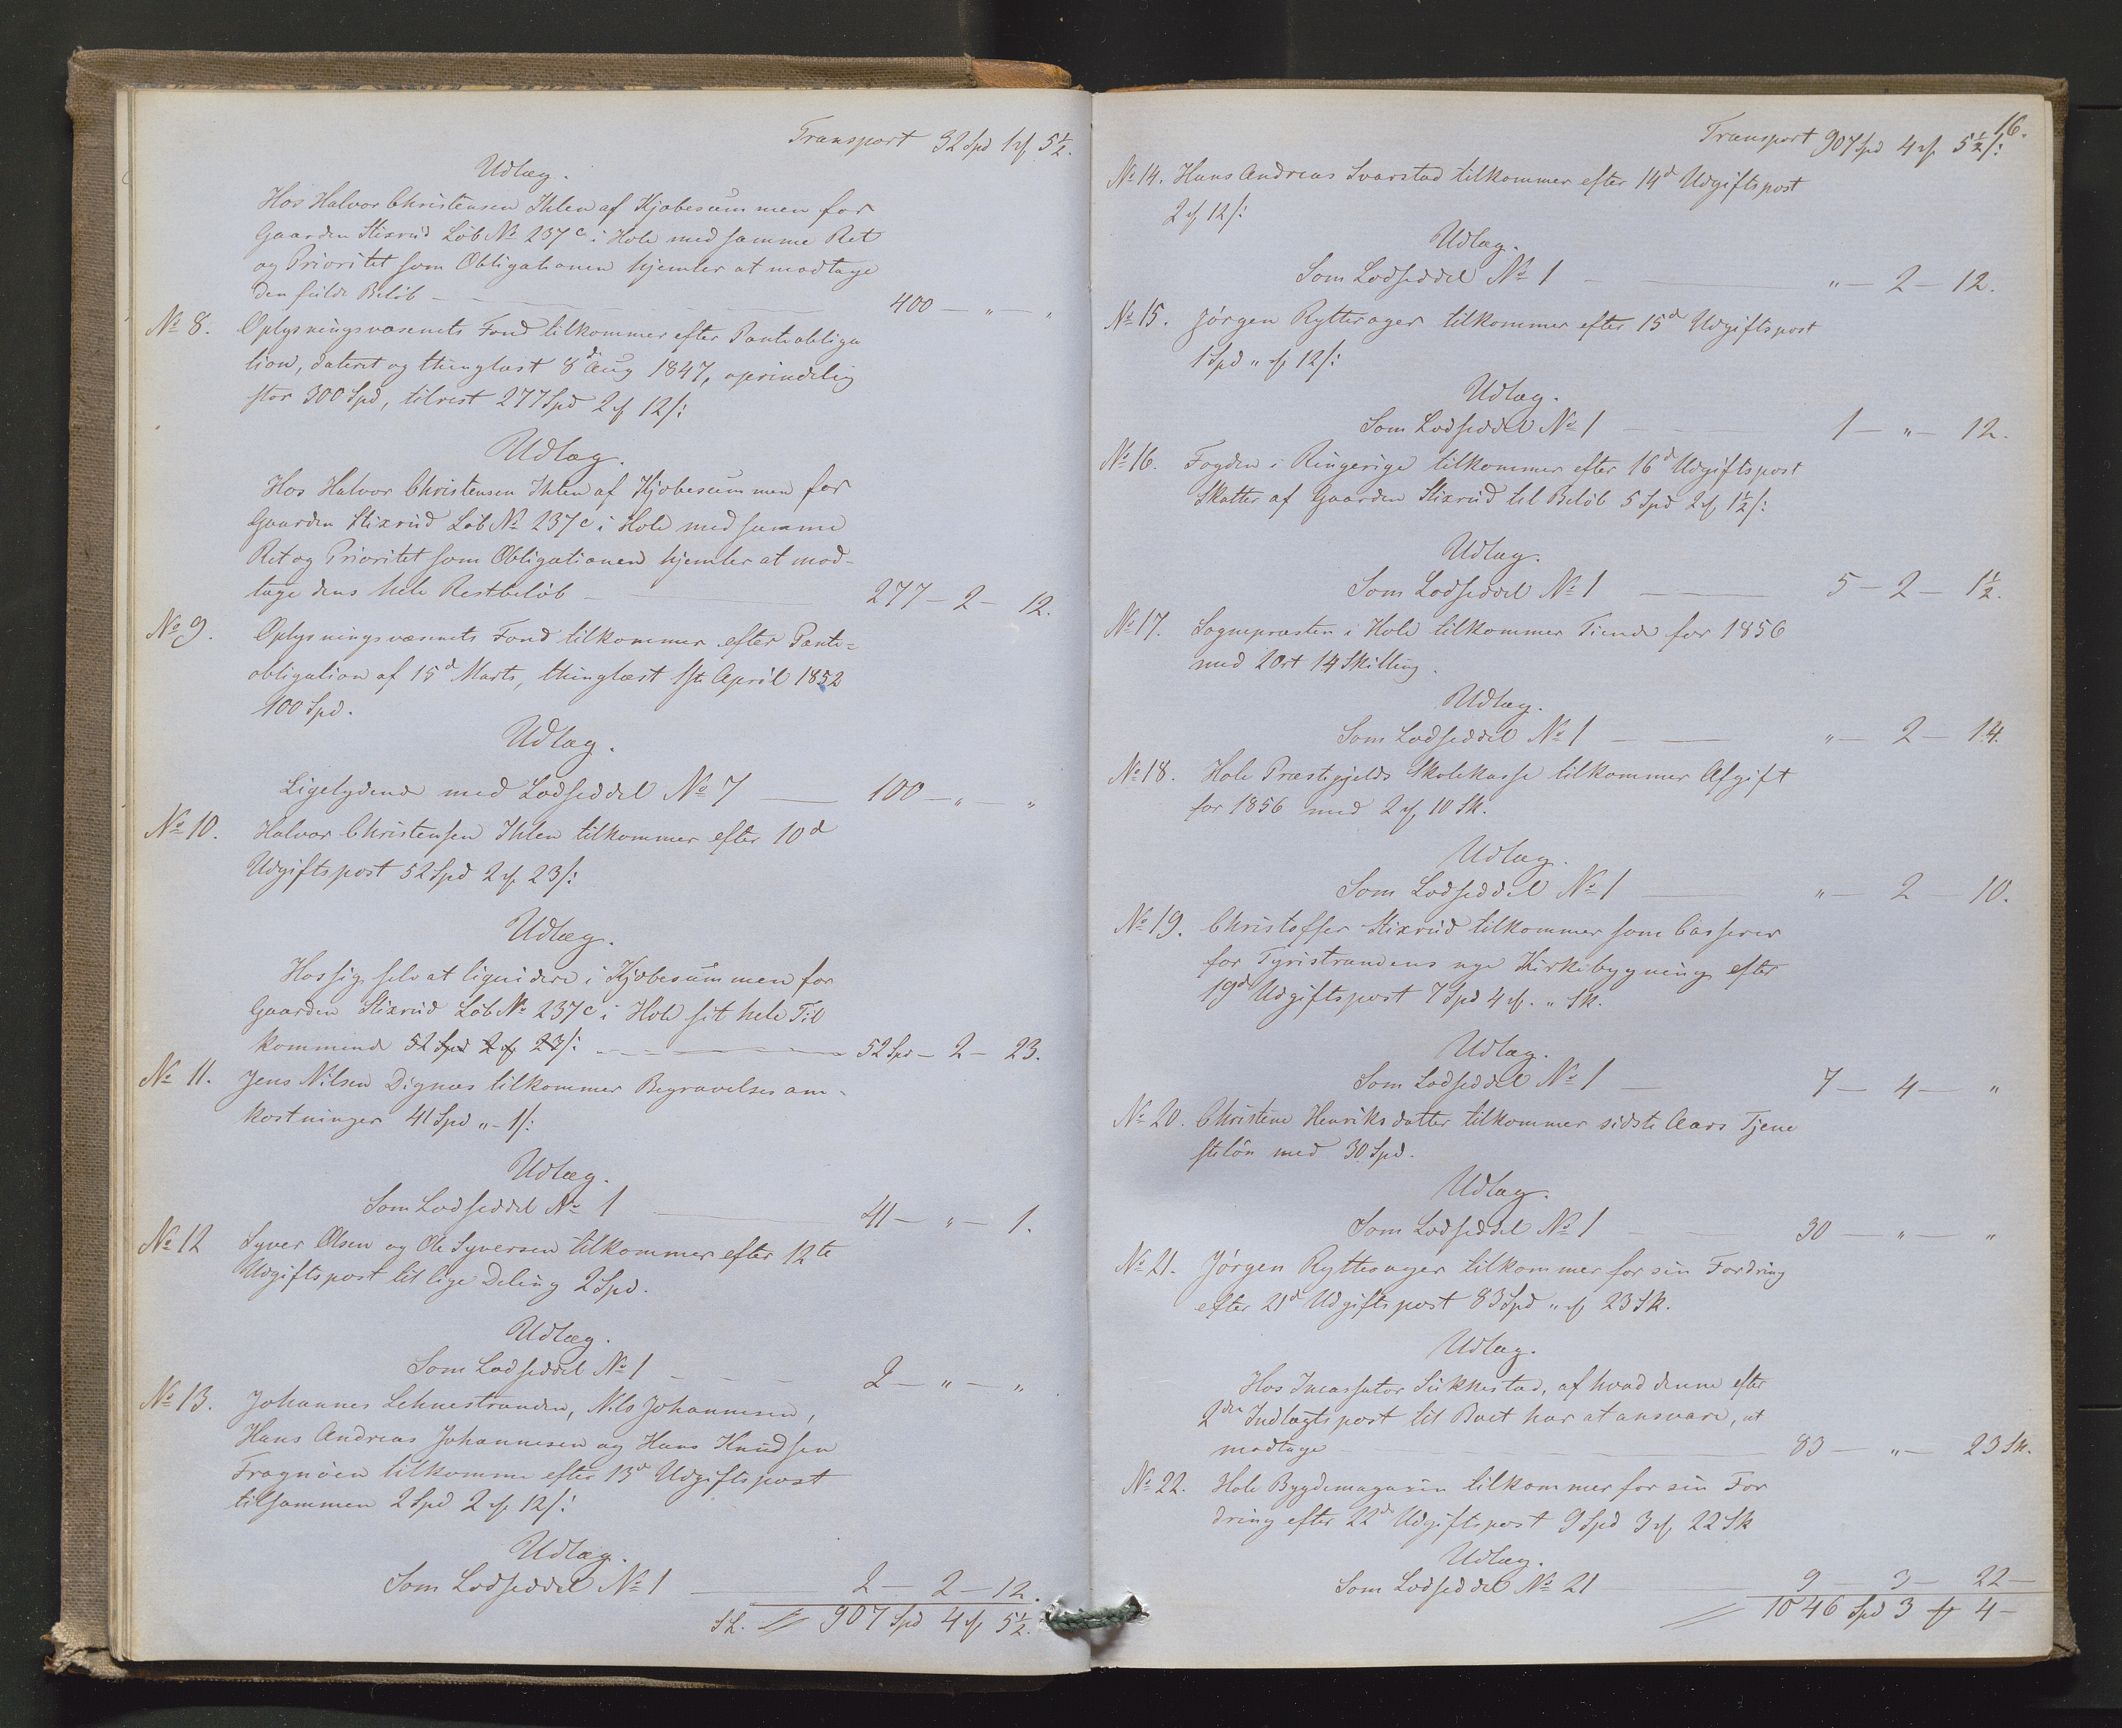 Transport 32 Spd 1 ₰ 5½.
Udlæg.
Hos Halvor Christensen Ihlen af Kjøbesummen for
Gaarden Stixrud Løb No 237c i Hole med samme Ret
og Prioritet som Obligationen hjemler at modtage
den fulde Beløb — 400 — " — "
No 8. Oplysningsvæsenets Fond tilkommer efter Panteobliga
tion, dateret og thinglæst 8d Aug 1847, oprindelig
stor 300 Spd, tilrest 277 Spd 2 ₰ 12 /:
Udlæg.
Hos Halvor Christensen Ihlen af Kjøbesummen for
Gaarden Stixrud Løb No 237c i Hole med samme
Ret og Prioritet som Obligationen hjemler at mod-
tage dens hele Restbeløb — 277 — 2 — 12.
No 9. Oplysningsvæsenets Fond tilkommer efter Pante=
obligation af 15d Marts, thinglæst 1ste April 1852
100 Spd.
Udlæg.
Ligelydende med Lodseddel No 7 — 100 — " — "
No 10. Halvor Christensen Ihlen tilkommer efter 10d
Udgiftspost 52 Spd 2 ₰ 23 /:
Udlæg.
Hos sig selv at liquidere i Kjøbesummen for
Gaarden Stixrud Løb No 237c i Hole sit hele Til
kommende 52 Spd 2 ₰ 23 /: — 52 Spd — 2 — 23.
No 11. Jens Nilsen Dignæs tilkommer Begravelsesom-
kostninger 41 Spd " - 1 /:
Udlæg.
Som Lodseddel No 1 — 41 — " — 1.
No 12 Syver Olsen og Ole Syversen tilkommer efter 12te
Udgiftspost til lige Deling 2 Spd.
Udlæg.
Som Lodseddel No 1 — 2 — " — "
No 13. Johannes Lehnestranden, Nils Johannesen,
Hans Andreas Johannesen og Hans Knudsen
Fragnøen tilkomme efter 13d Udgiftspost
tilsammen 2 Spd 2 ₰ 12 /:
Udlæg.
Som Lodseddel No 1 — 2 — 2 — 12.
907 Spd 4 ₰ 5½.
16.
Transport 907 Spd 4 ₰ 5½ /:
No 14. Hans Andreas Svarstad tilkommer efter 14d Udgiftspost
2 ₰ 12 /:
Udlæg.
Som Lodseddel No 1 — " — 2 — 12.
No 15. Jørgen Rytterager tilkommer efter 15d Udgiftspost
1 Spd " ₰ 12 /:
Udlæg.
Som Lodseddel No 1 — 1 — " — 12.
No 16. Fogden i Ringerige tilkommer efter 16d Udgiftspost
Skatter af Gaarden Stixrud til Beløb 5 Spd 2 ₰ 1½ /:
Udlæg.
Som Lodseddel No 1 — 5 — 2 — 1½.
No 17. Sognepræsten i Hole tilkommer Tiende for 1856
med 2 Ort 14 Skilling.
Udlæg.
Som Lodseddel No 1 — " — 2 — 14.
No 18. Hole Præstegjelds Skolekasse tilkommer Afgift
for 1856 med 2 ₰ 10 Sk.
Udlæg.
Som Lodseddel No 1 — " — 2 — 10.
No 19. Christoffer Stixrud tilkommer som Casserer
for Tyristrandens nye Kirkebygning efter
19d Udgiftspost 7 Spd 4 ₰. " Sk.
Udlæg.
Som Lodseddel No 1 — 7 — 4 — "
No 20. Christine Henriksdatter tilkommer sidste Aars Tjene
steløn med 30 Spd.
Udlæg.
Som Lodseddel No 1 — 30 — " — "
No 21. Jørgen Rytterager tilkommer for sin Fordring
efter 21d Udgiftspost 83 Spd " ₰ 23 Sk.
Udlæg.
Hos Incassator Sukkestad, af hvad denne efter
2den Indtægtspost til Boet har at ansvare, at
modtage — 83 — " — 23 Sk.
No 22. Hole Bygdemagasin tilkommer for sin For
dring efter 22d Udgiftspost 9 Spd 3 ₰ 22 Sk
Udlæg.
Som Lodseddel No 21 9 — 3 — 22 —
1046 Spd 3 ₰ 4 —